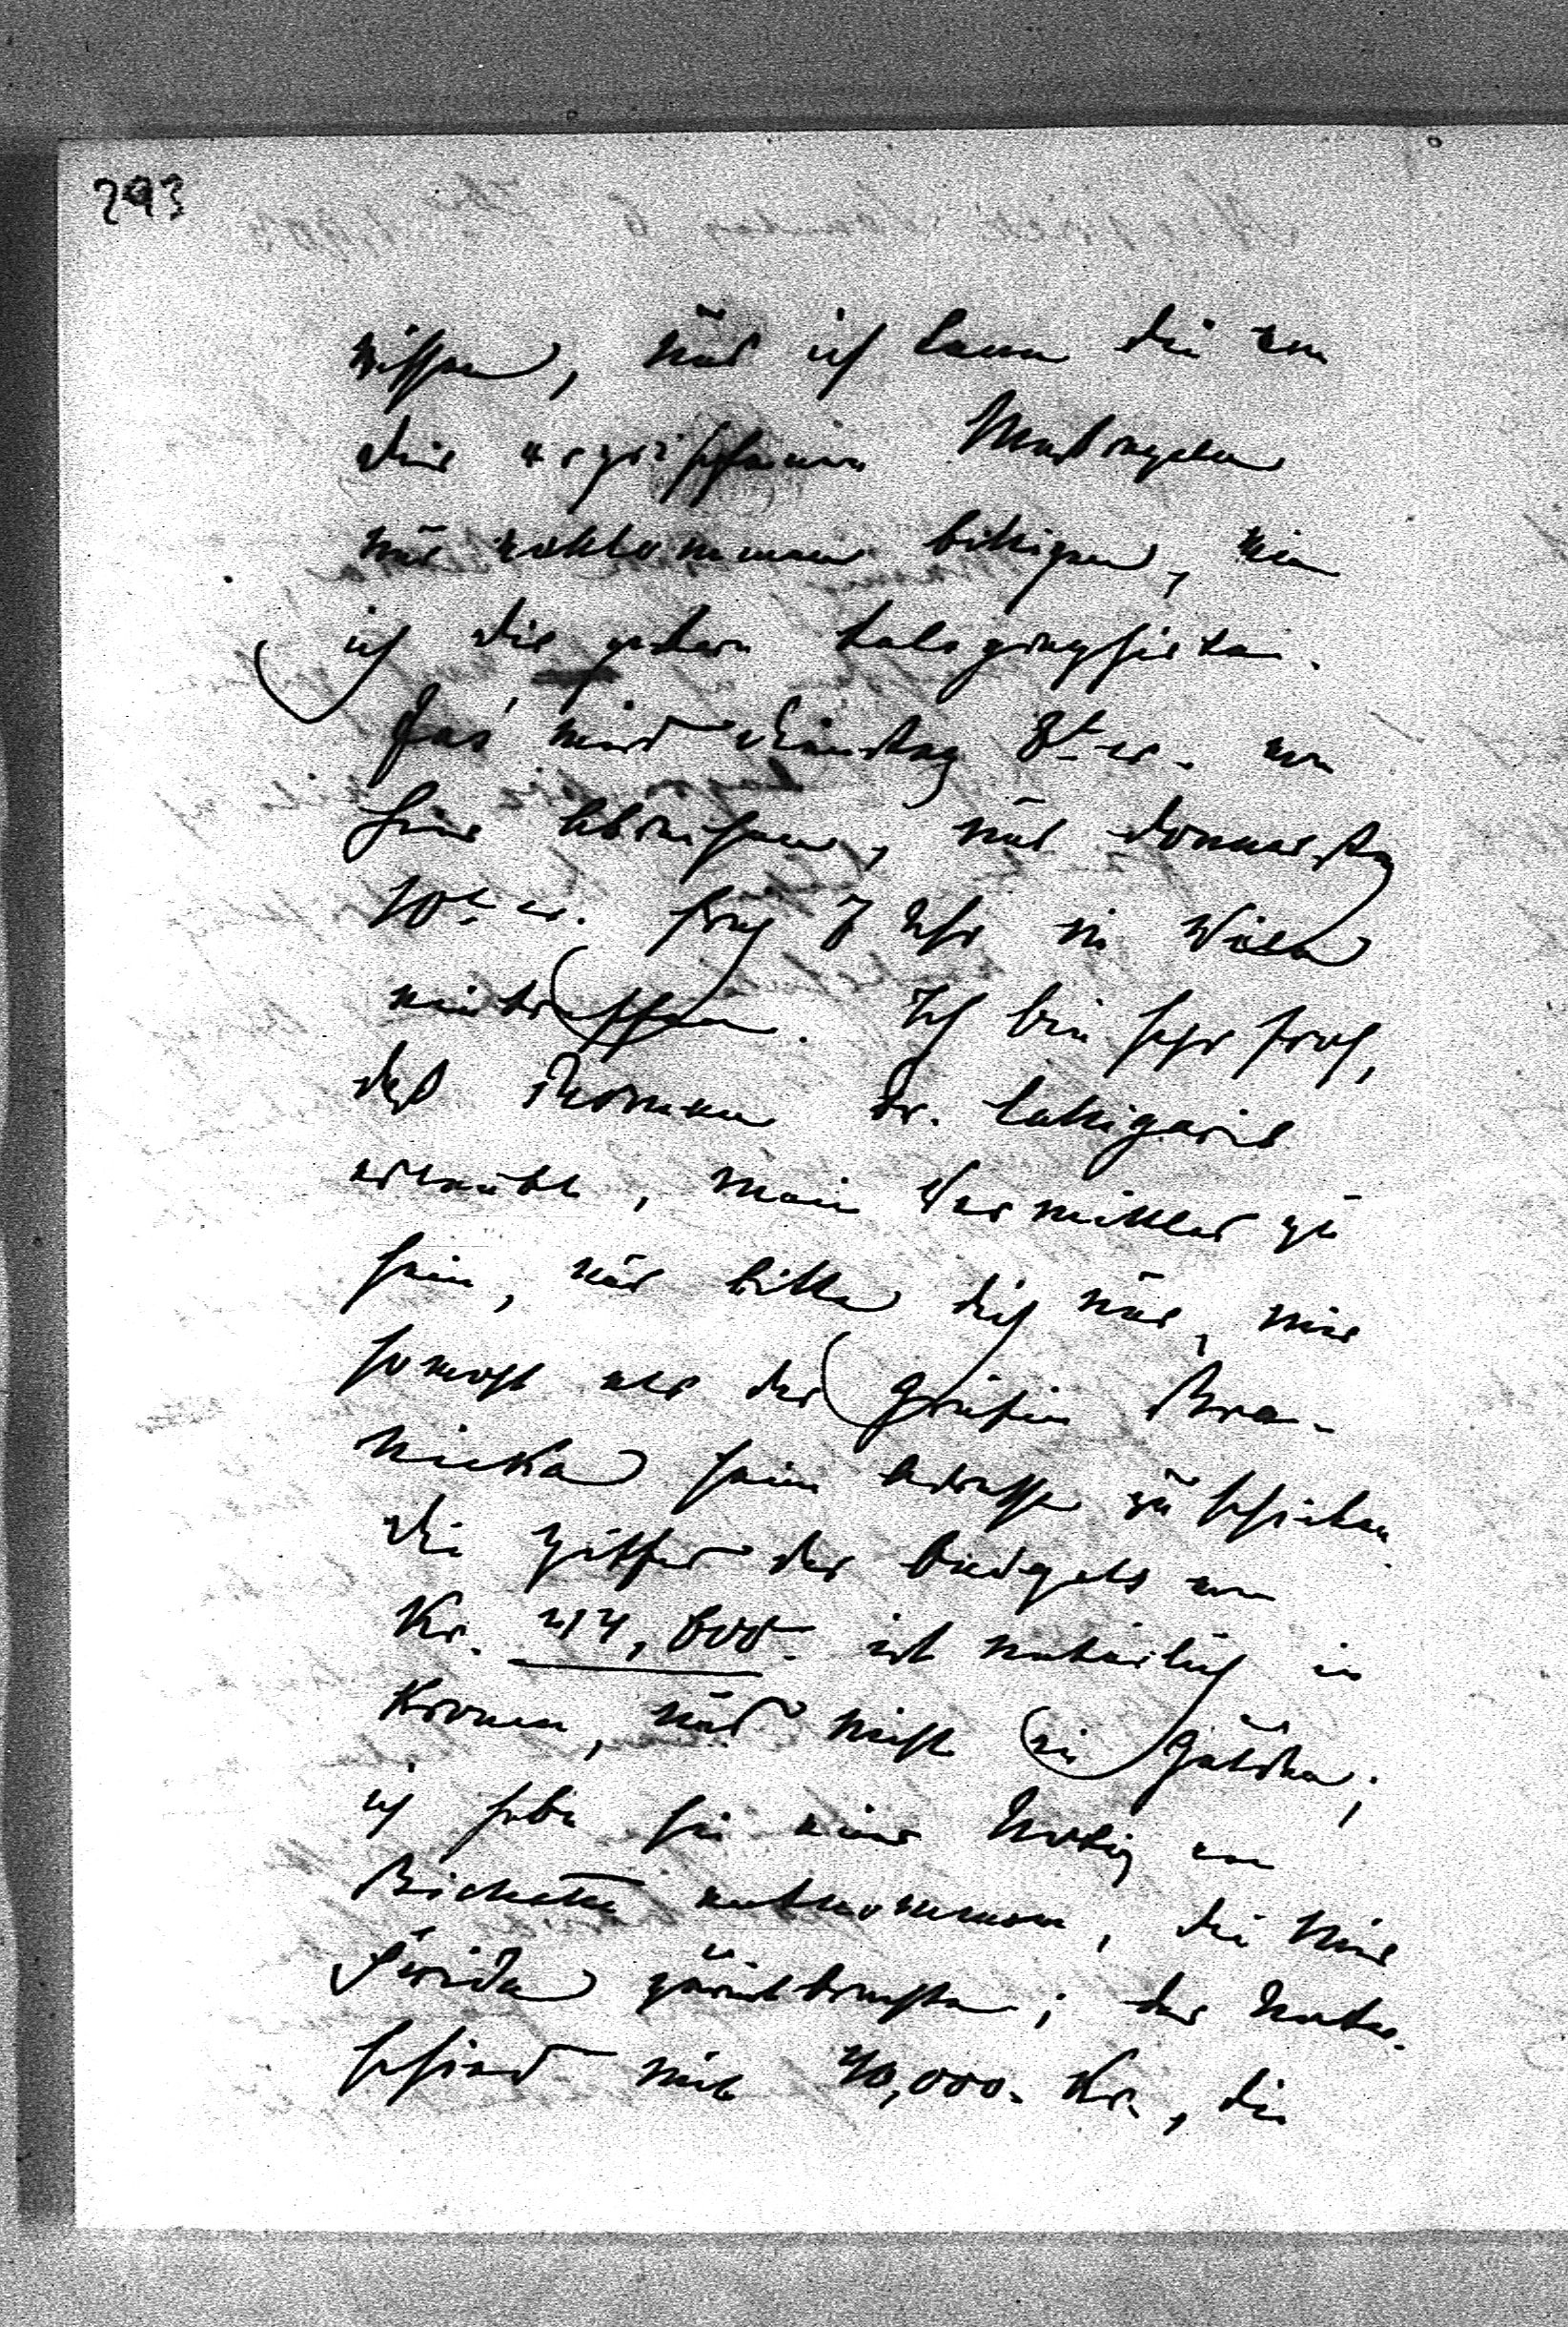 293
wissen, und ich kann die von
Dir ergriffenen Maßregeln
nur vollkommen billigen, wie
ich Dir gestern telegraphirte.
Ich werde Dienstag 8t. cr. von
hier abreisen, und Donnerstag
10t. cr. früh 7 Uhr in Wien
eintreffen. Ich bin sehr froh,
daß Thommen Dr. Calligaris
erlaubt, mein Vermittler zu
sein, und bitte Dich nur, mir
sowohl als der Gräfin Bra-
nicka seine Adresse zu schicken.
Die Ziffer des Budgets von
Kr. 414,000. ist natürlich in
Kronen, und nicht in Gulden;
ich habe sie einer Notiz von
entnommen, die mir
Frieda zurückbrachte; der Unter-
schied mit 40,000. Kr., die